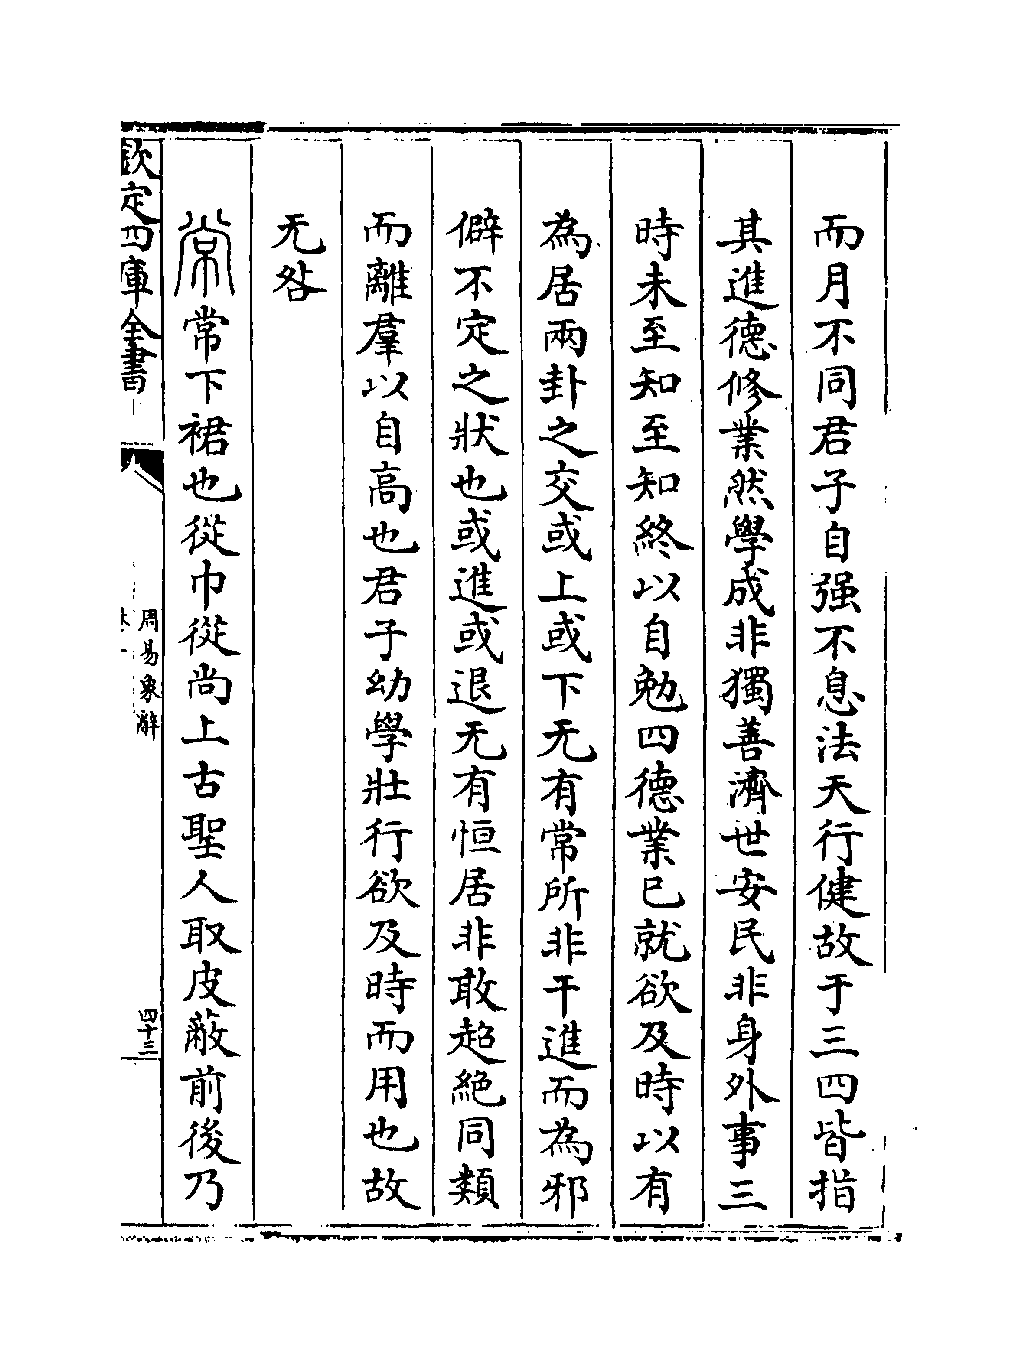 而月不同君子自强不息法天行健故于三四皆指
其進德修業然學成非獨善濟世安民非身外事三
時未至知至知終以自勉四德業已就欲及時以有
為居兩卦之交或上或下无有常所非干進而為邪
僻不定之狀也或進或退无有恒居非敢超絶同類
而離羣以自高也君子幼學壯行欲及時而用也故
无咎
常常下裙也從巾從尚上古聖人取皮蔽前後乃
欽定四庫全書
周易象辭
四十三